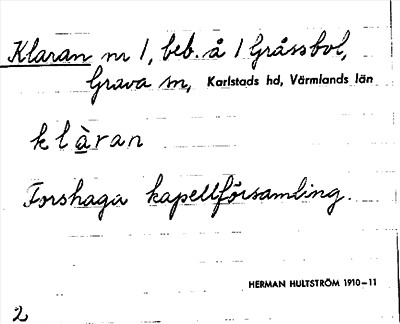 Klaran nr 1, beb. å 1 Gråssbol,
Grava sn, Karlstads hd, Värmlands län
klàran
Forshaga kapellförsamling.
HERMAN HULTSTRÖM 1910–11
2